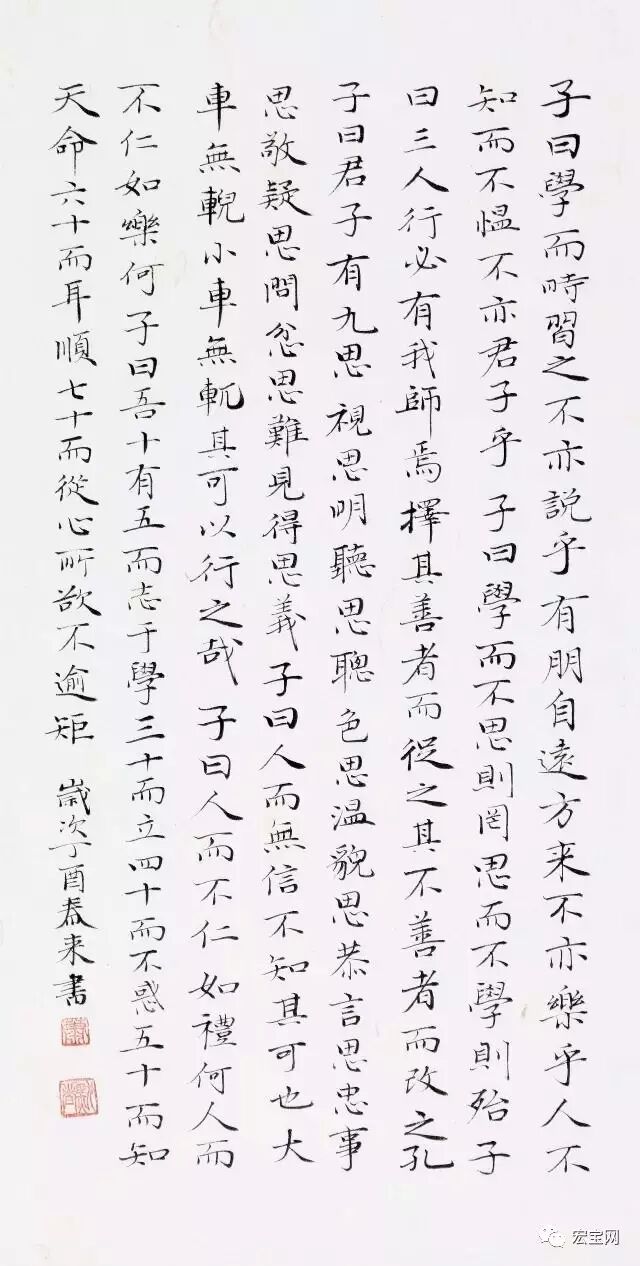 子曰學而時習之不亦説乎有朋自遠方来不亦樂乎人不
知而不愠不亦君子乎子曰學而不思則罔思而不學則殆子
曰三人行必有我師焉擇其善者而從之其不善者而改之孔
子曰君子有九思視思明聽思聰色思温貌思恭言思忠事
思敬疑思問忿思難見得思義子曰人而無信不知其可也大
車無輗小車無軏其可以行之哉子曰人而不仁如禮何人而
不仁如樂何子曰吾十有五而志于學三十而立四十而不惑五十而知
天命六十而耳順七十而從心所欲不逾矩 歲次丁酉春来書
宏宝网